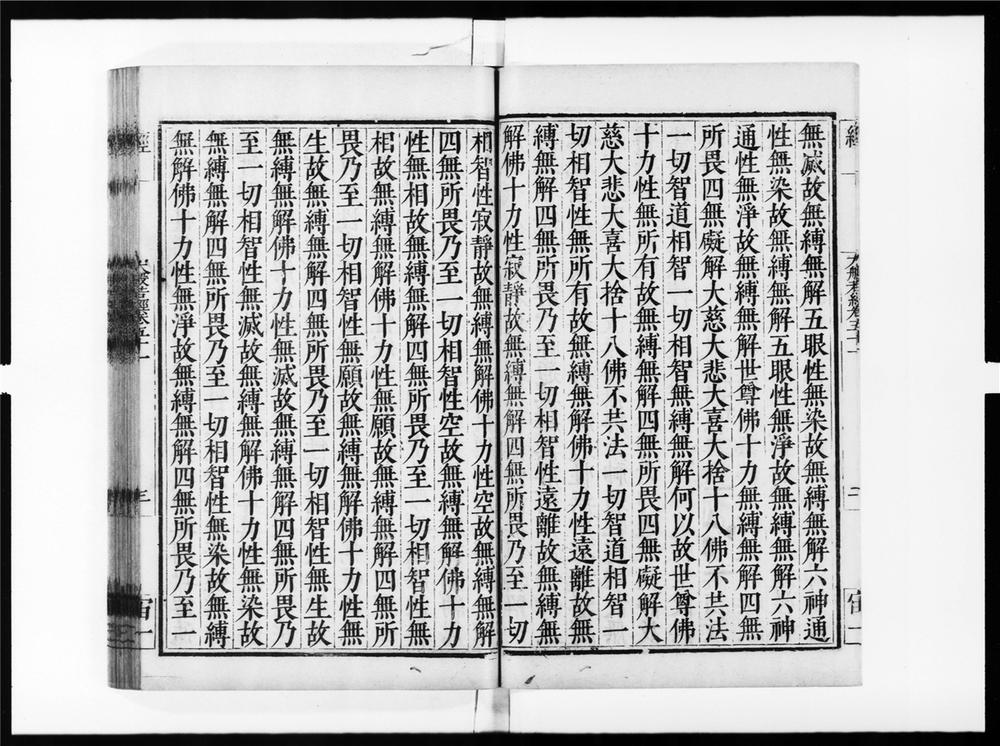 無滅故無縛無解五眼性無染故無縛無解六神通
性無染故無縛無解五眼性無淨故無縛無解六神
通性無淨故無縛無解世尊佛十力無縛無解四無
所畏四無礙解大慈大悲大喜大捨十八佛不共法
一切智道相智一切相智無縛無解何以故世尊佛
十力性無所有故無縛無解四無所畏四無礙解大
慈大悲大喜大捨十八佛不共法一切智道相智一
切相智性無所有故無縛無解佛十力性遠離故無
縛無解四無所畏乃至一切相智性遠離故無縛無
解佛十力性寂靜故無縛無解四無所畏乃至一切
相智性寂靜故無縛無解佛十力性空故無縛無解
四無所畏乃至一切相智性空故無縛無解佛十力
性無相故無縛無解四無所畏乃至一切相智性無
相故無縛無解佛十力性無願故無縛無解四無所
畏乃至一切相智性無願故無縛無解佛十力性無
生故無縛無解四無所畏乃至一切相智性無生故
無縛無解佛十力性無滅故無縛無解四無所畏乃
至一切相智性無滅故無縛無解佛十力性無染故
無縛無解四無所畏乃至一切相智性無染故無縛
無解佛十力性無淨故無縛無解四無所畏乃至一